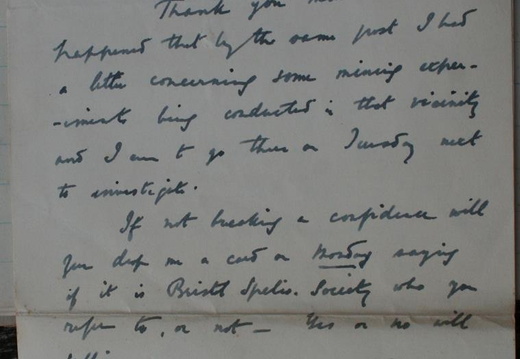 Thank you
happened that by the same post I had
a letter concerning some mining exper-
-iments being conducted in that vicinity
and I am to go there on Tuesday next
to investigate.
If not breaking a confidence will
you drop me a card on Monday saying
if it is Bristol Speleo. Society who you
refer to, or not — Yes or no will